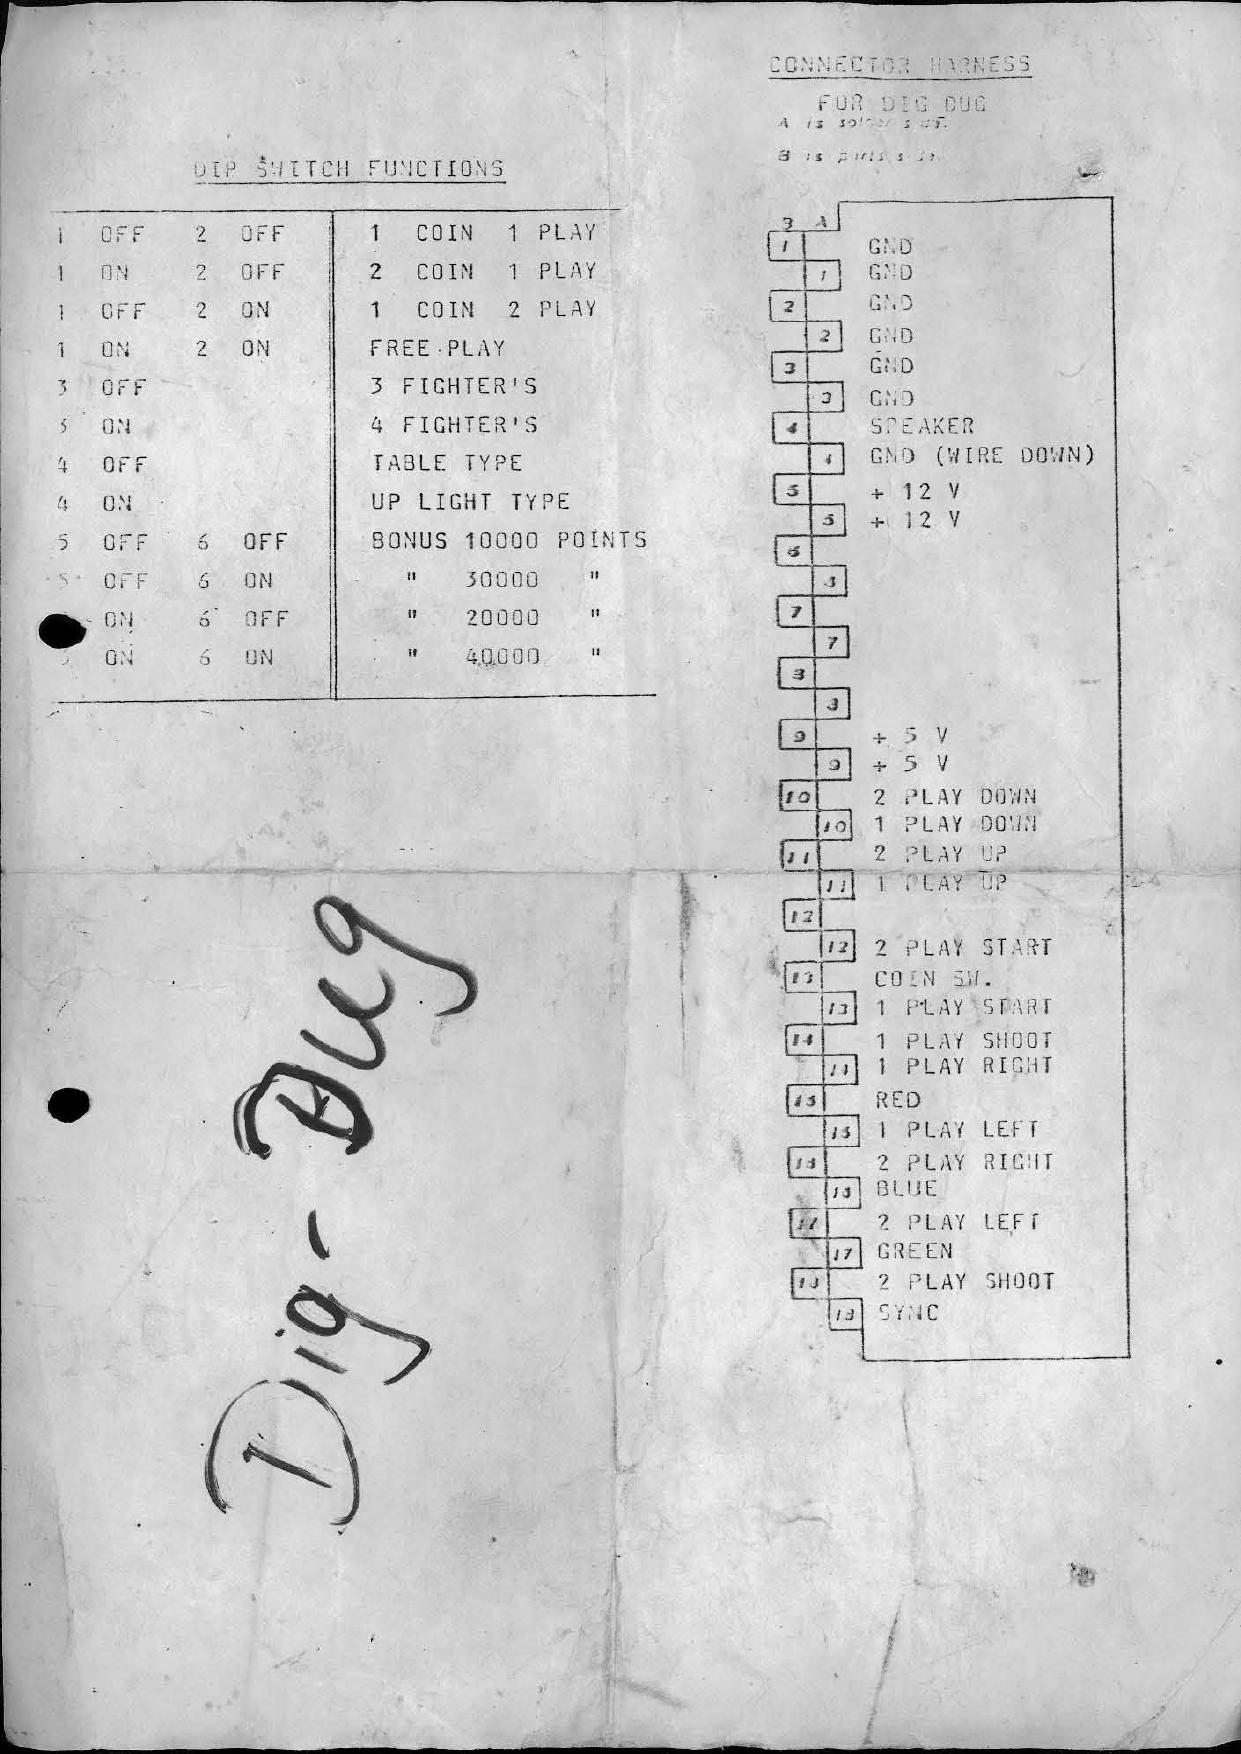 DIP SWITCH FUNCTIONS
1 OFF 2 OFF 1 COIN 1 PLAY
1 ON 2 OFF 2 COIN 1 PLAY
1 OFF 2 ON 1 COIN 2 PLAY
1 ON 2 ON FREE PLAY
3 OFF 3 FIGHTER'S
3 ON 4 FIGHTER'S
4 OFF TABLE TYPE
4 ON UP LIGHT TYPE
5 OFF 6 OFF BONUS 10000 POINTS
5 OFF 6 ON " 30000 "
ON 6 OFF " 20000 "
ON 6 ON " 40000 "
Dig-Dug
CONNECTOR HARNESS
FOR DIG DUG
A is solder
B is parts
B A
1 GND
1 GND
2 GND
2 GND
3 GND
3 GND
4 SPEAKER
4 GND (WIRE DOWN)
5 + 12 V
5 + 12 V
6
6
7
7
8
8
9 + 5 V
9 + 5 V
10 2 PLAY DOWN
10 1 PLAY DOWN
11 2 PLAY UP
11 1 PLAY UP
12
12 2 PLAY START
13 COIN SW.
13 1 PLAY START
14 1 PLAY SHOOT
14 1 PLAY RIGHT
15 RED
15 1 PLAY LEFT
16 2 PLAY RIGHT
16 BLUE
17 2 PLAY LEFT
17 GREEN
18 2 PLAY SHOOT
18 SYNC